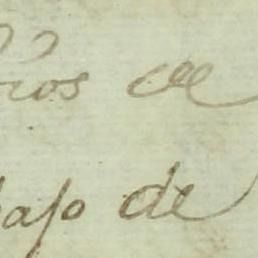 ros de
bajo de